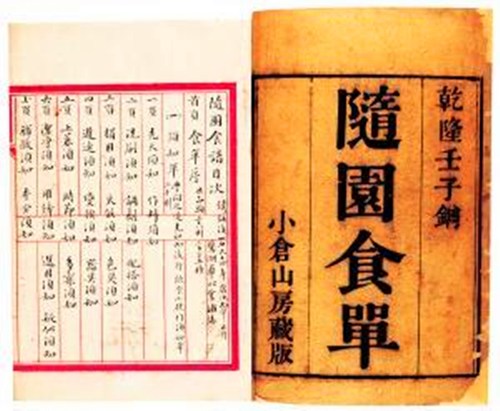 乾隆壬子鐫
隨園食單
小倉山房藏版
隨園食譜目次
首頁 食單序
須知單
一頁 先天須知 作料須知
二頁 洗刷須知 調劑須知 配搭須知
三頁 獨用須知 火候須知 色臭須知
四頁 遲速須知 變換須知 器具須知
五頁 上菜須知 時節須知 多寡須知
六頁 潔淨須知 用縴須知 選用須知 疑似須知
補救須知 本分須知